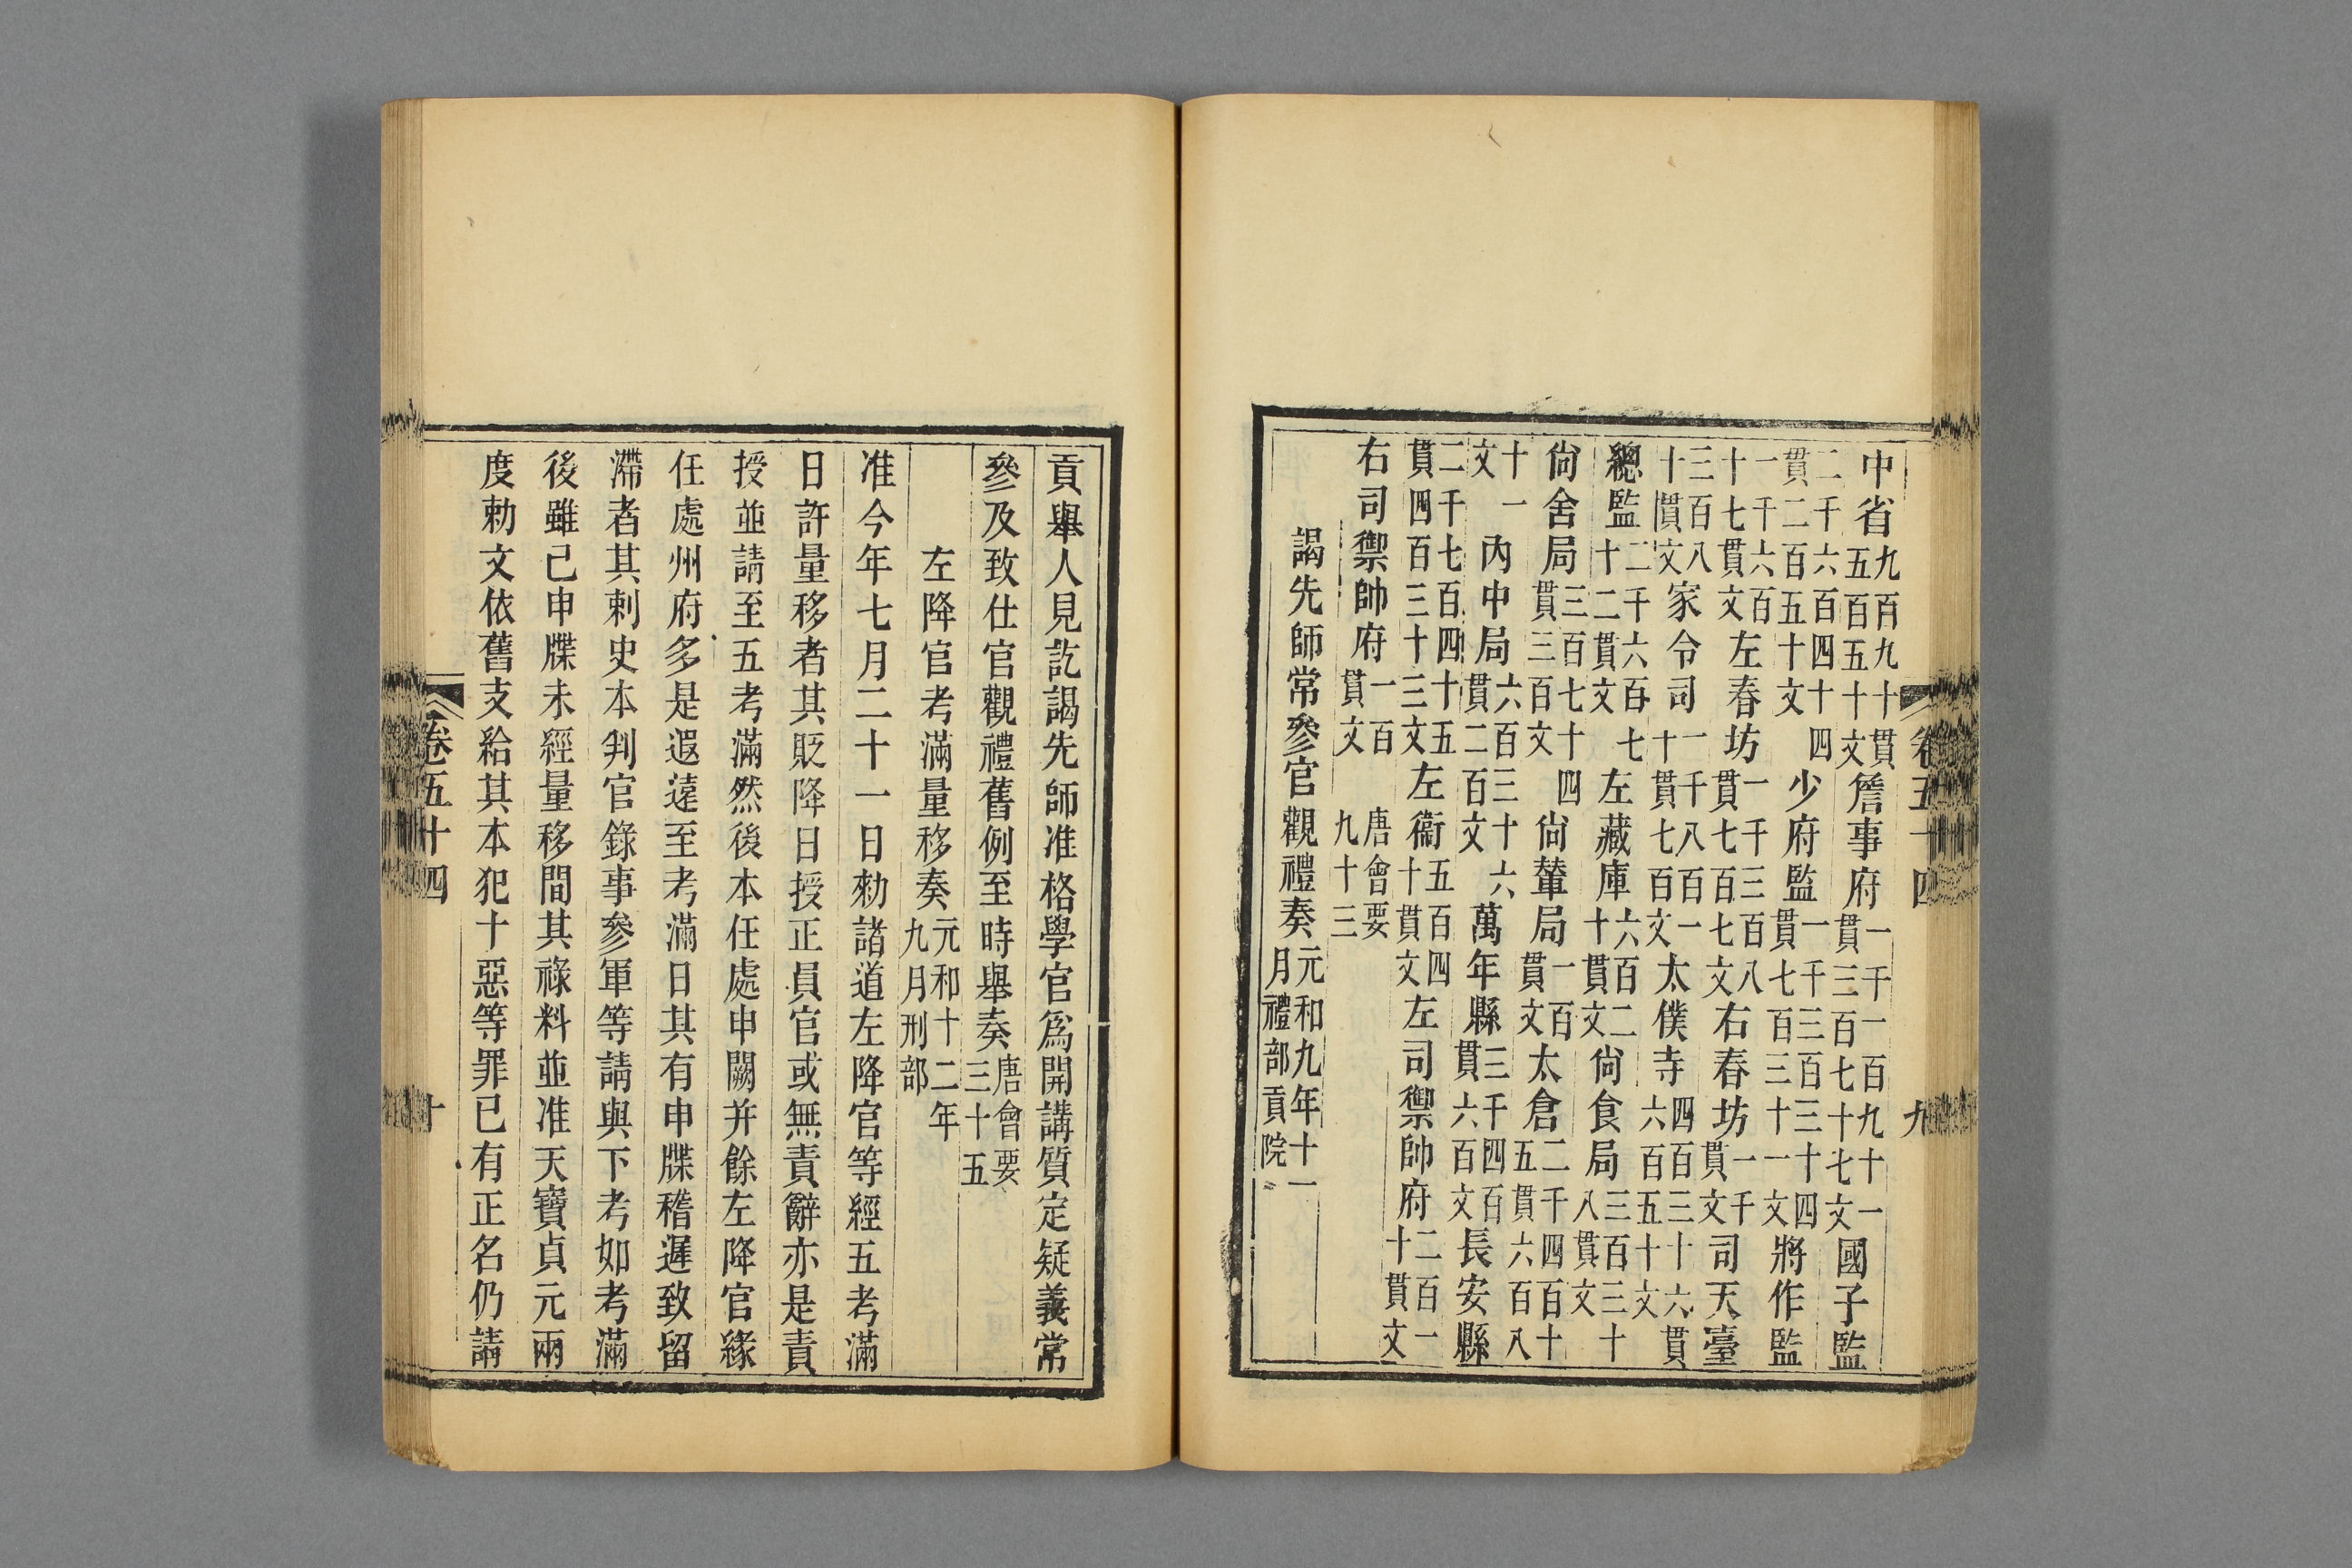 卷五十四　九
中省九百九十貫五百五十文詹事府一千一百九十一貫三百七十七文國子監
二千六百四十四貫二百五十文少府監一千三百三十四貫七百三十一文將作監
一千六百十七貫文左春坊一千三百八貫七百七文右春坊一千貫文司天臺
三百八十貫文家令司一千八百一十貫七百文太僕寺四百三十六貫六百五十文
總監二千六百七十二貫文左藏庫六百二十貫文尙食局三百三十八貫文
尙舍局三百七十四貫三百文尙輦局一百貫文太倉二千四百十五貫六百八
十一文内中局六百三十六貫二百文萬年縣三千四百貫六百文長安縣
二千七百四十五貫四百三十三文左衞五百四十貫文左司禦帥府二百一十貫文
右司禦帥府一百貫文　唐會要九十三
謁先師常參官觀禮奏元和九年十一月禮部貢院
貢舉人見訖謁先師准格學官爲開講質定疑義常
參及致仕官觀禮舊例至時舉奏唐會要三十五
左降官考滿量移奏元和十二年九月刑部
准今年七月二十一日勑諸道左降官等經五考滿
日許量移者其貶降日授正員官或無責辭亦是責
授並請至五考滿然後本任處申闕并餘左降官緣
任處州府多是遐遠至考滿日其有申牒稽遲致留
滯者其刺史本判官錄事參軍等請與下考如考滿
後雖已申牒未經量移間其祿料並准天寶貞元兩
度勅文依舊支給其本犯十惡等罪已有正名仍請
卷五十四　十